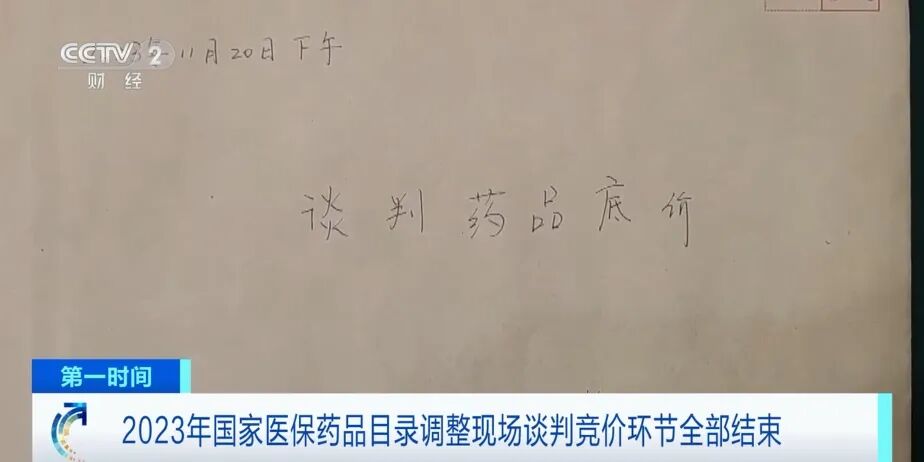 CCTV 2
财经
3年11月20日下午
谈判药品底价
第一时间
2023年国家医保药品目录调整现场谈判竞价环节全部结束